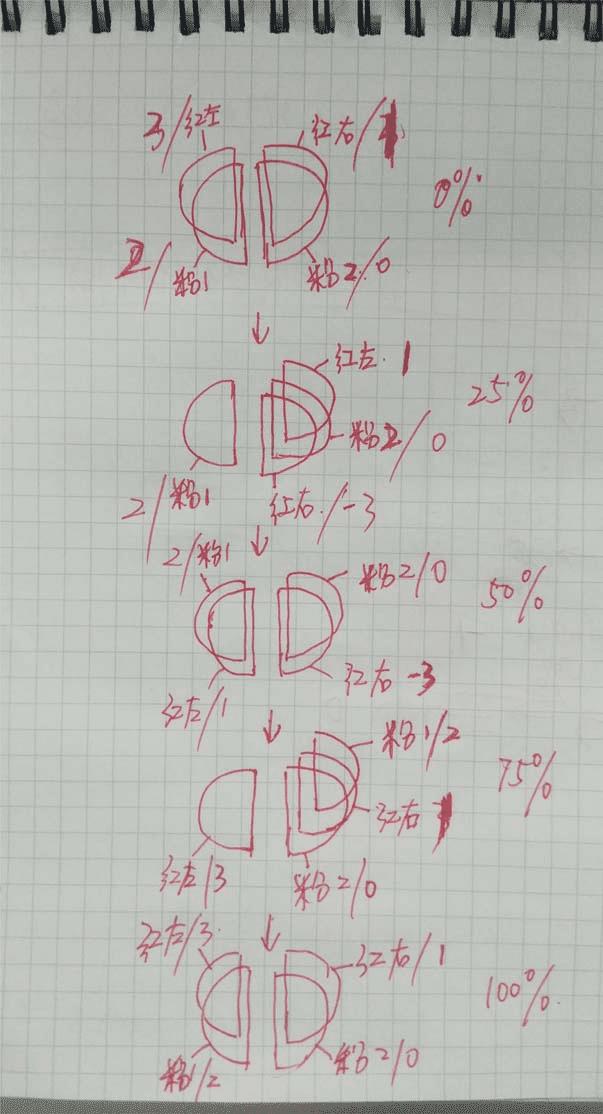 3/红左
红右/
0%
2/粉1
粉2/0
红左 1
25%
粉2/0
2/粉1
红右/-3
2/粉1
粉2/0
50%
红右 -3
红左/1
粉1/2
75%
红右 1
红左/3
粉2/0
红左/3
红右/1
100%
粉1/2
粉2/0